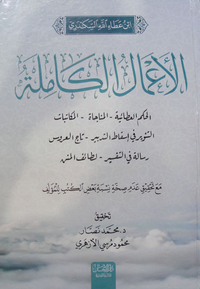 ابن عطاء الله السكندري
الأعمال الكاملة
الحكم العطائية - المناجاة - المكاتبات
التنوير في إسقاط التدبير - تاج العروس
رسالة في التفسير - لطائف المنن
مع تحقيق عدم صحة نسبة بعض الكتب للمؤلف
تحقيق
د. محمد نصار
محمود مرسي الأزهري